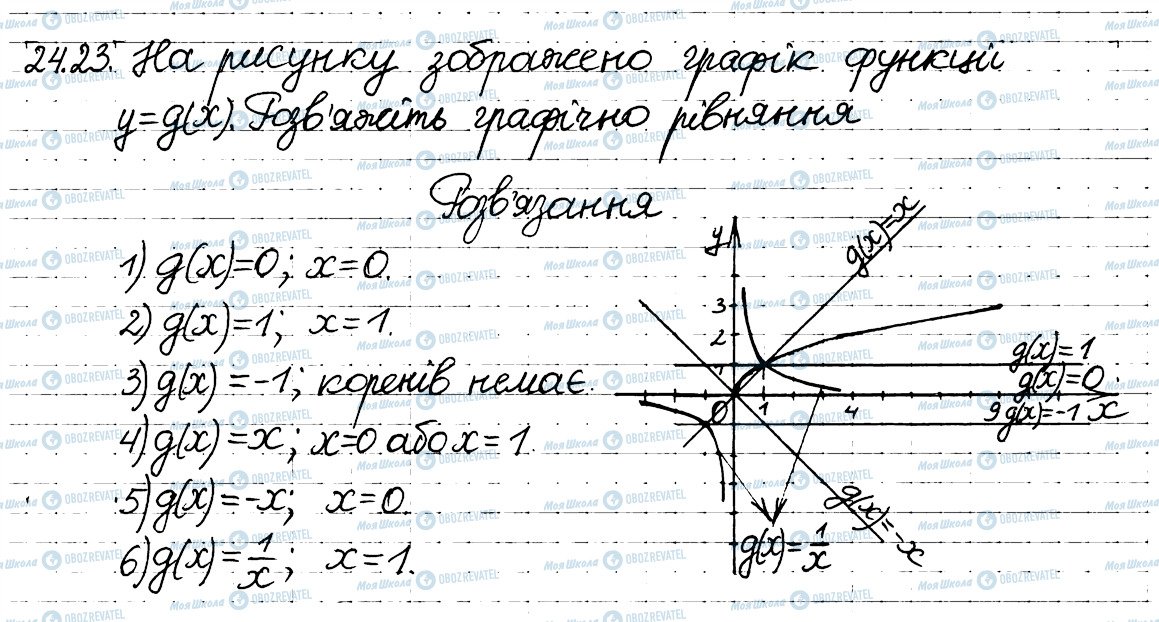 24.23. На рисунку зображено графік функції
y=g(x). Розв'яжіть графічно рівняння
Розв'язання
1) g(x)=0; x=0.
2) g(x)=1; x=1.
3) g(x)=-1; коренів немає.
4) g(x)=x; x=0 або x=1.
5) g(x)=-x; x=0.
6) g(x)=1/x; x=1.
y
g(x)=x
3
2
1
g(x)=1
g(x)=0
0 1 4 9 x
g(x)=-1
g(x)=-x
g(x)=1/x
МояШкола OBOZREVATEL